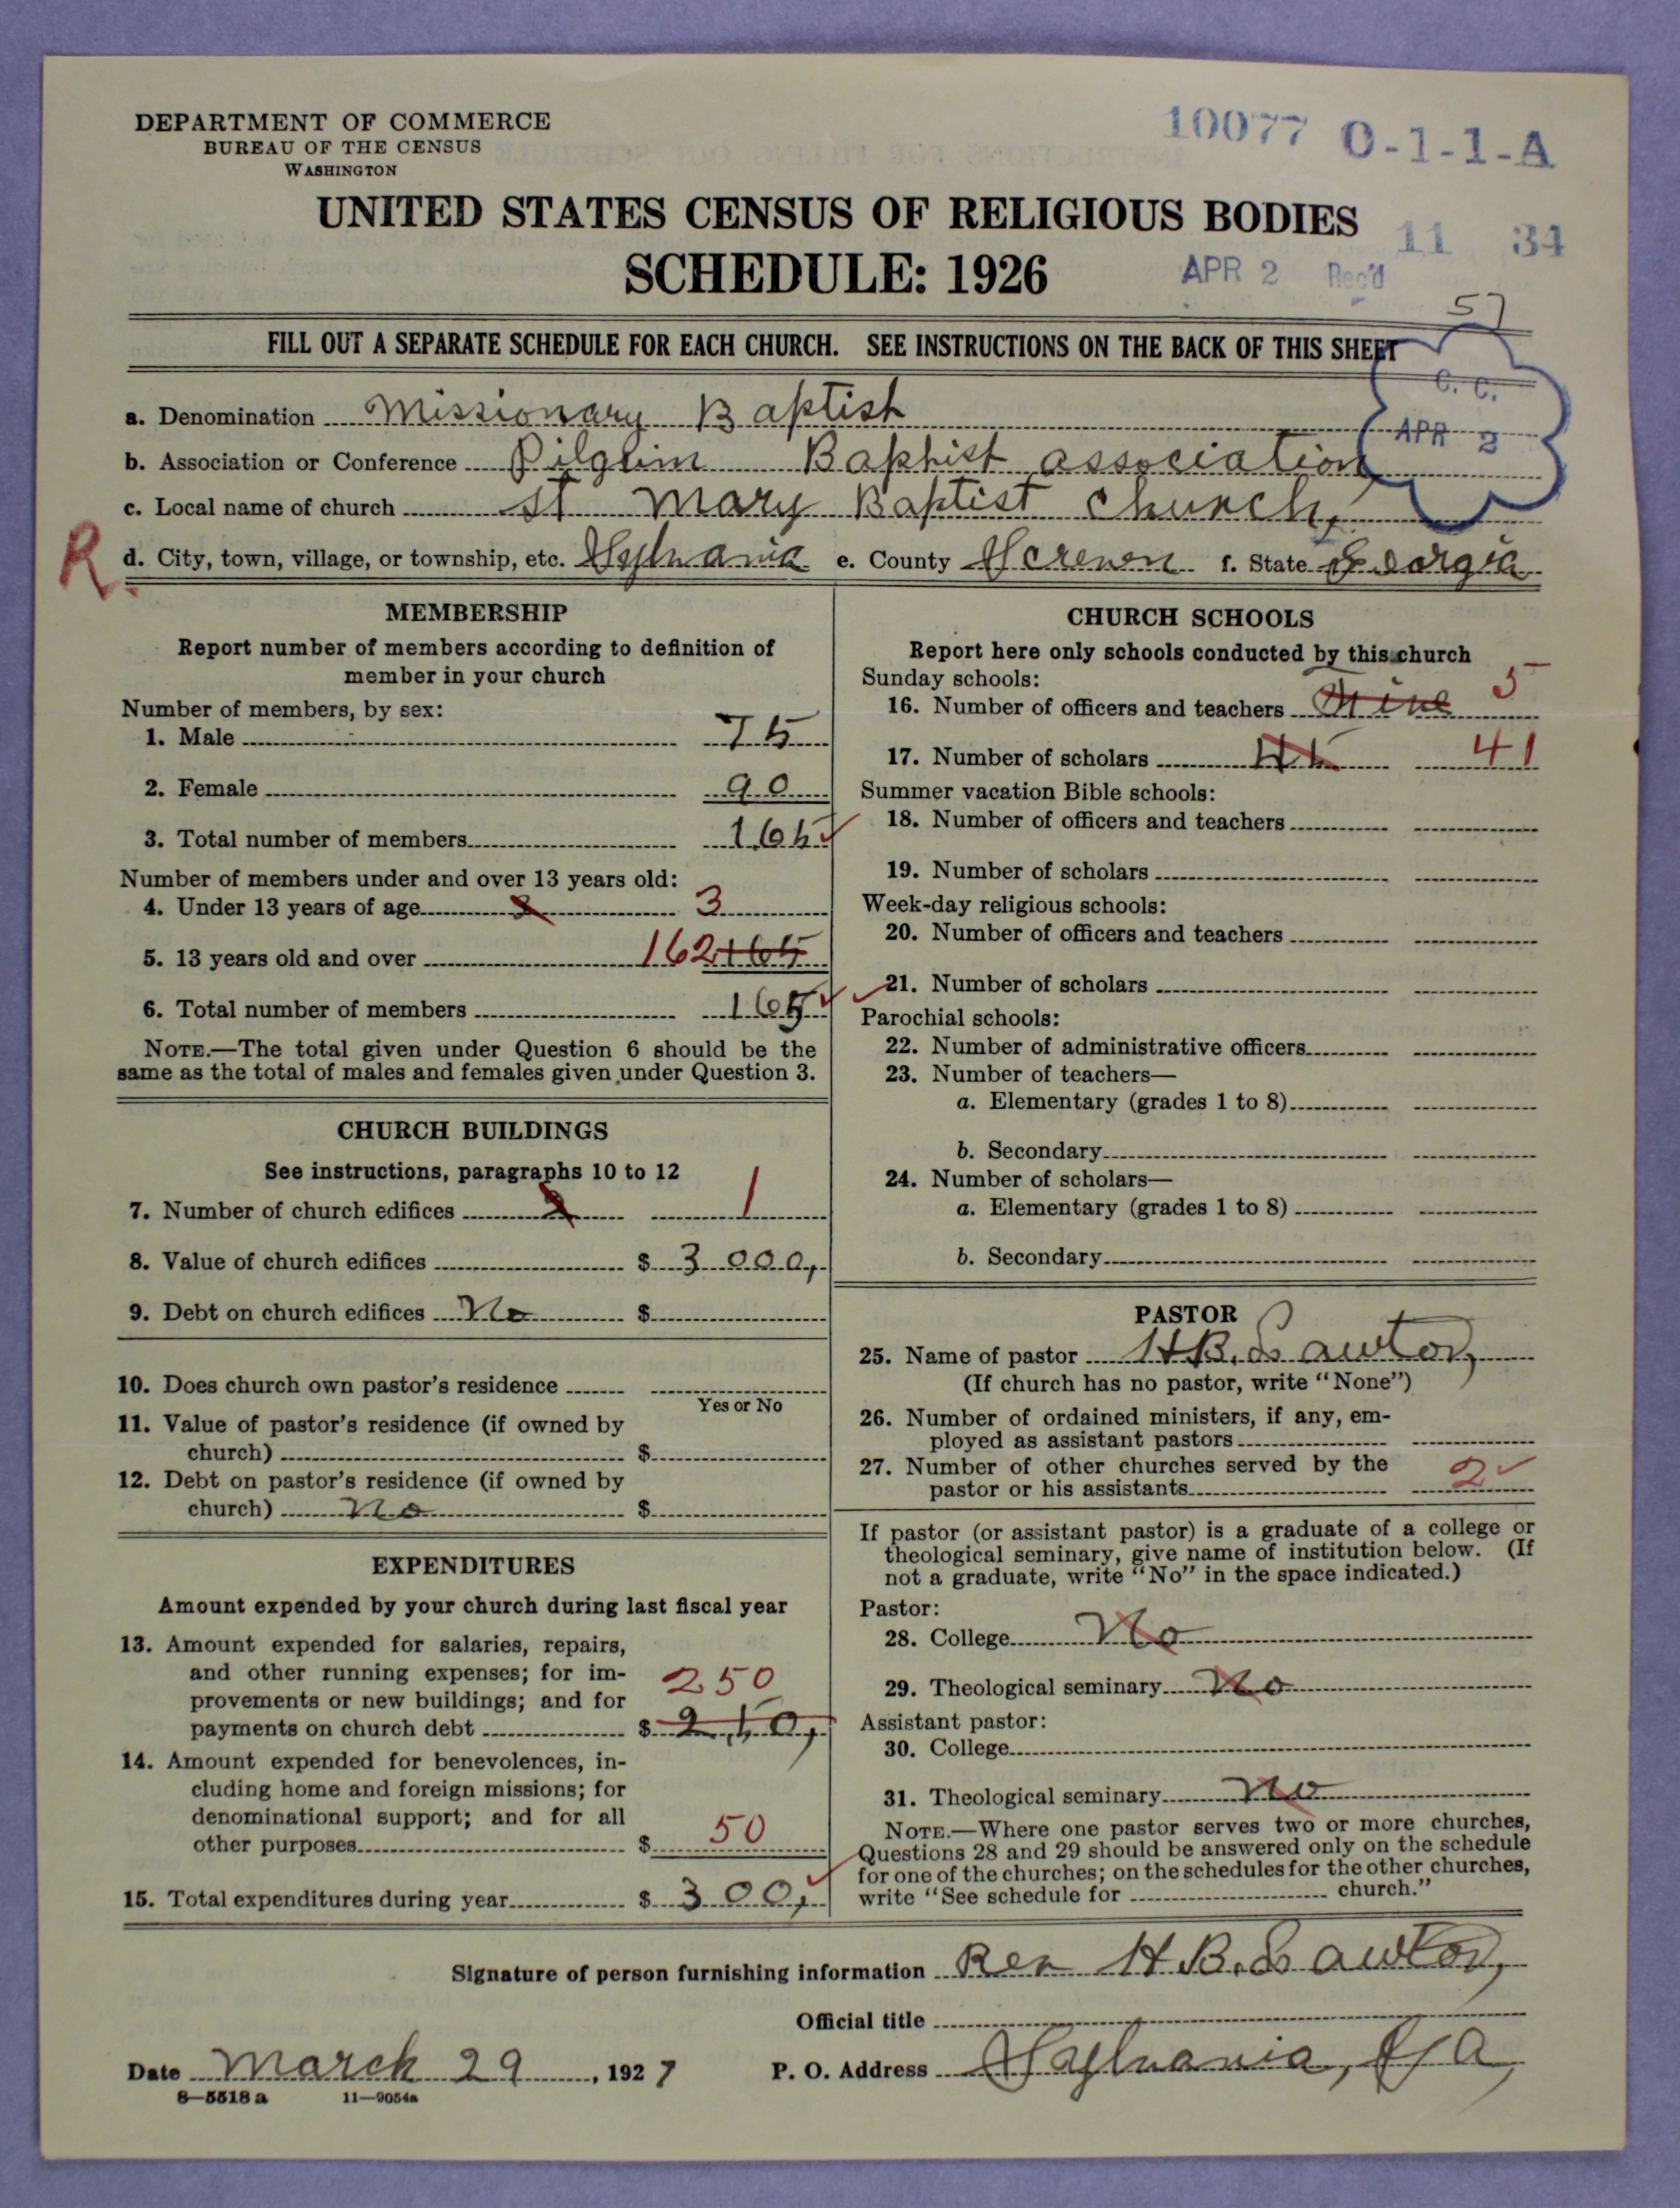 DEPARTMENT OF COMMERCE
BUREAU OF THE CENSUS
WASHINGTON
10077 O-1-1-A
UNITED STATES CENSUS OF RELIGIOUS BODIES
11 34
SCHEDULE: 1926
APR 2 Rec'd
57
FILL OUT A SEPARATE SCHEDULE FOR EACH CHURCH. SEE INSTRUCTIONS ON THE BACK OF THIS SHEET
C. C.
APR 2
a. Denomination Missionary Baptist
b. Association or Conference Pilgrim Baptist association
c. Local name of church St Mary Baptist Church,
R
d. City, town, village, or township, etc. Sylvania e. County Screven f. State Georgia
MEMBERSHIP
Report number of members according to definition of
member in your church
Number of members, by sex:
1. Male 75
2. Female 90
3. Total number of members 165
Number of members under and over 13 years old:
4. Under 13 years of age 3
5. 13 years old and over 162 165
6. Total number of members 165
NOTE.—The total given under Question 6 should be the
same as the total of males and females given under Question 3.
CHURCH BUILDINGS
See instructions, paragraphs 10 to 12
7. Number of church edifices 1
8. Value of church edifices $ 3000,
9. Debt on church edifices No $
10. Does church own pastor's residence
Yes or No
11. Value of pastor's residence (if owned by
church) $
12. Debt on pastor's residence (if owned by
church) No $
EXPENDITURES
Amount expended by your church during last fiscal year
13. Amount expended for salaries, repairs,
and other running expenses; for im-
provements or new buildings; and for 250
payments on church debt $ 250,
14. Amount expended for benevolences, in-
cluding home and foreign missions; for
denominational support; and for all
other purposes $ 50
15. Total expenditures during year $ 300,
CHURCH SCHOOLS
Report here only schools conducted by this church
Sunday schools:
16. Number of officers and teachers 5
17. Number of scholars 41
Summer vacation Bible schools:
18. Number of officers and teachers
19. Number of scholars
Week-day religious schools:
20. Number of officers and teachers
21. Number of scholars
Parochial schools:
22. Number of administrative officers
23. Number of teachers—
a. Elementary (grades 1 to 8)
b. Secondary
24. Number of scholars—
a. Elementary (grades 1 to 8)
b. Secondary
PASTOR
25. Name of pastor H.B. Lawton,
(If church has no pastor, write "None")
26. Number of ordained ministers, if any, em-
ployed as assistant pastors
27. Number of other churches served by the
pastor or his assistants 2
If pastor (or assistant pastor) is a graduate of a college or
theological seminary, give name of institution below. (If
not a graduate, write "No" in the space indicated.)
Pastor:
28. College No
29. Theological seminary No
Assistant pastor:
30. College
31. Theological seminary No
NOTE.—Where one pastor serves two or more churches,
Questions 28 and 29 should be answered only on the schedule
for one of the churches; on the schedules for the other churches,
write "See schedule for church."
Signature of person furnishing information Rev H.B. Lawton,
Official title
Date March 29, 1927 P. O. Address Sylvania, Ga,
8—5518 a 11—9054a